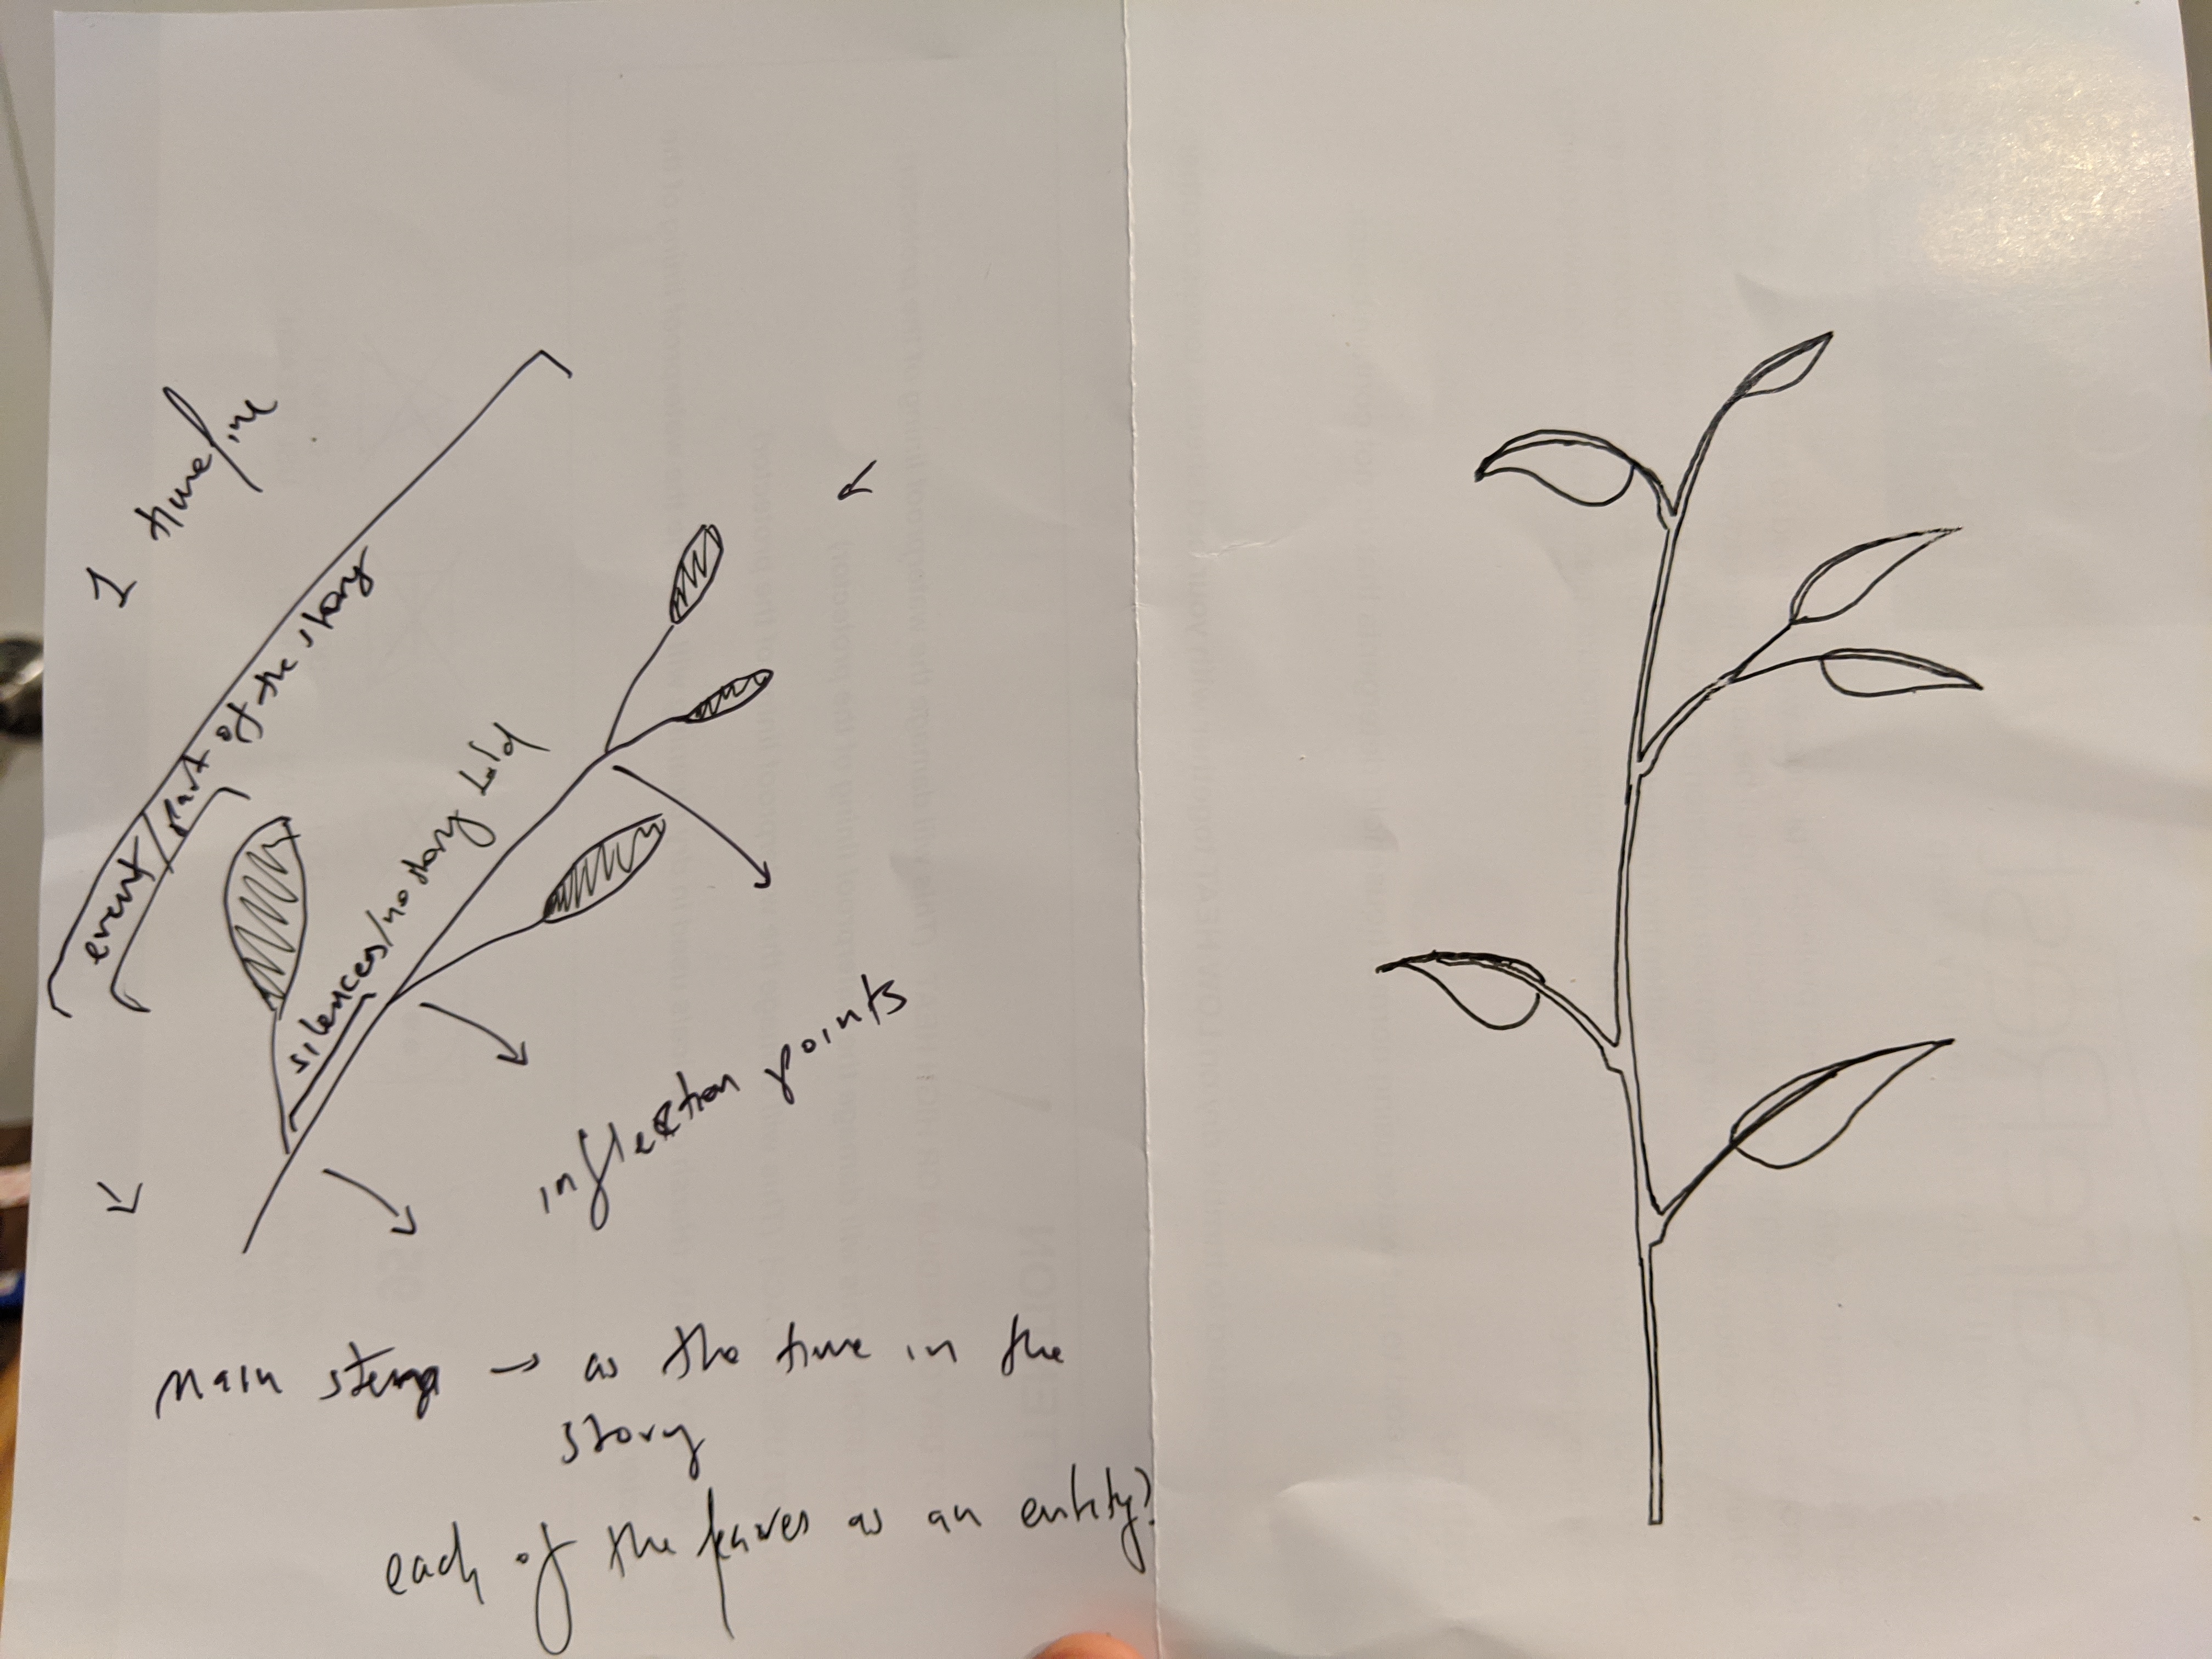 1 timeline
event/part of the story
silences/no story told
inflection points
Main stem → as the time in the
story
each of the leaves as an entity?